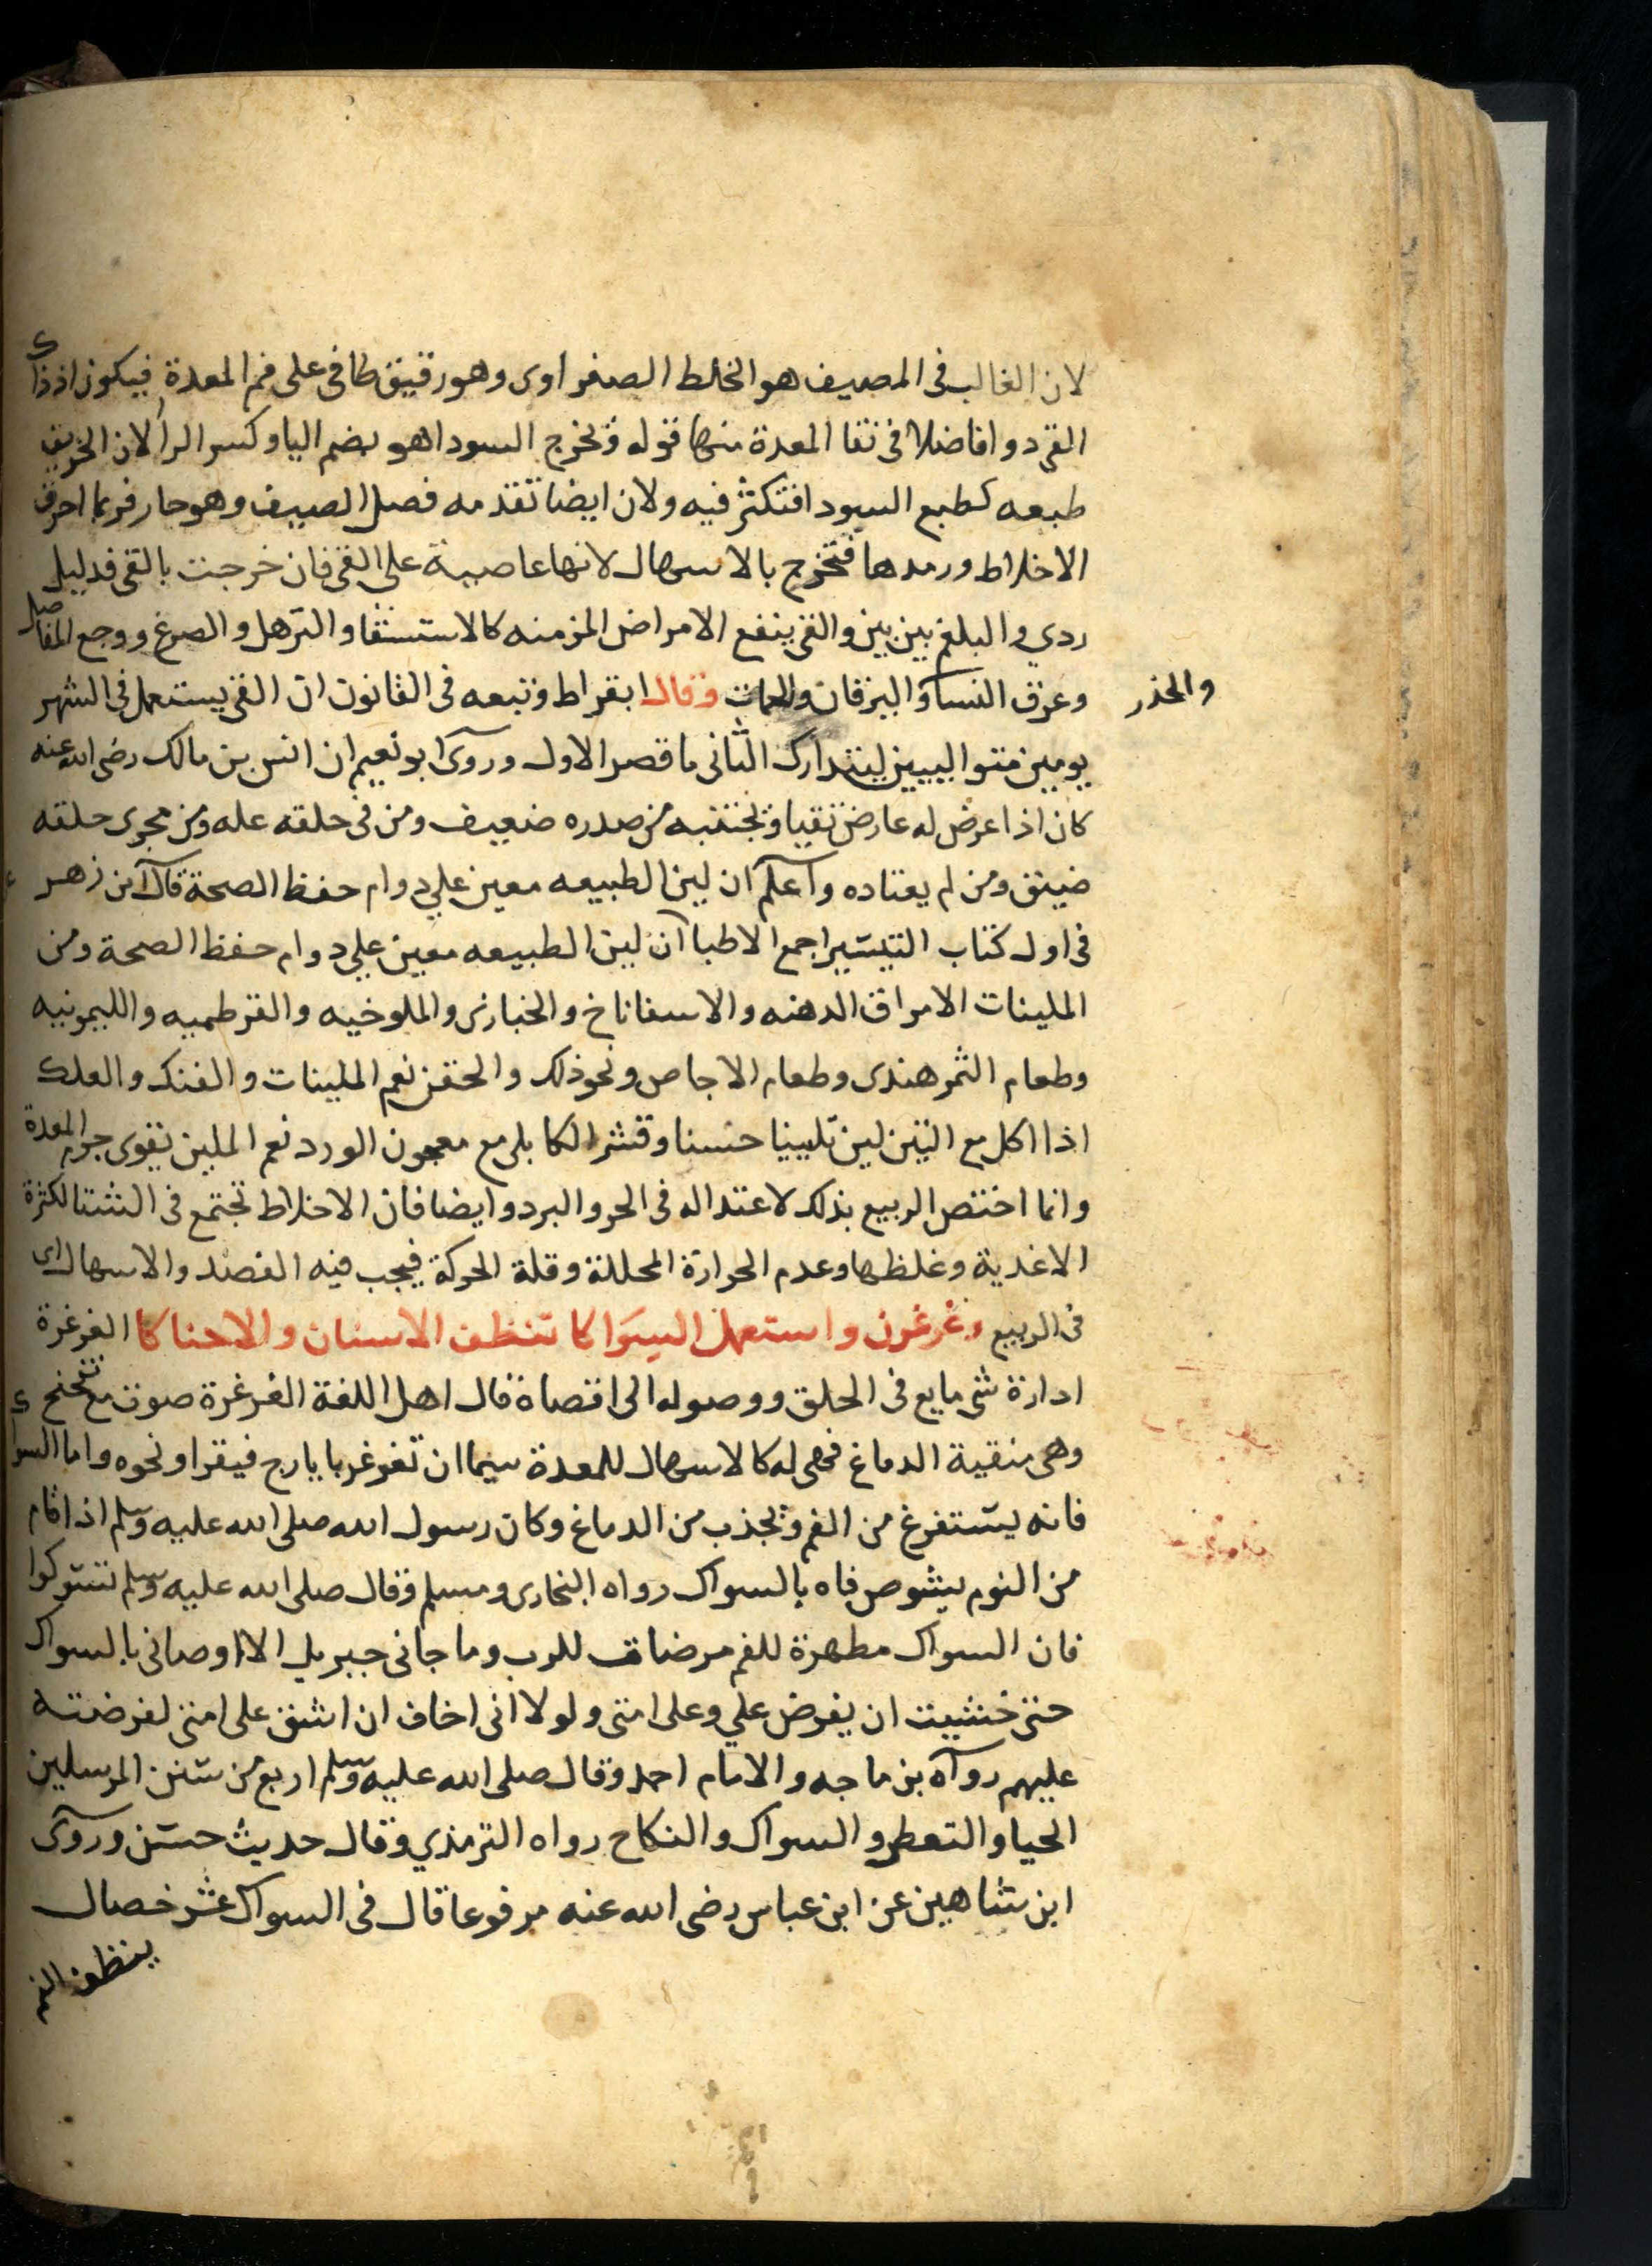 لان الغالب فى المصيف هو الخلط الصفراوى وهو رقيق طافى على فم المعدة فيكون اذ ذاك
القى دوا فاضلا فى نقا المعدة منها قوله وتخرج السودا هو بضم اليا وكسر الرا لان الخريف
طبعه كطبع السودا فتكثر فيه ولان ايضا تقدمه فصل الصيف وهو حار فربما احرق
الاخلاط ورمدها فتخرج بالاسهال لانها عاصية على القى فان خرجت بالقى فدليل
ردي والبلغم بين بين والقى ينفع الامراض المزمنه كالاستسقا والترهل والصرع ووجع المفاصل
وعرق النسا واليرقان وقال ابقراط وتبعه فى القانون ان القى يستعمل فى الشهر
والخدر
يومين متواليين ليتدارك الثانى ما قصر الاول وروى ابو نعيم ان انس بن مالك رضى الله عنه
كان اذا عرض له عارض تقيا وتجتنبه من صدره ضعيف ومن فى حلقه عله ومن مجرى حلقه
ضيق ومن لم يعتاده واعلم ان لين الطبيعه معين علي دوام حفظ الصحة قال ابن زهر
فى اول كتاب التيسير اجمع الاطبا ان لين الطبيعه معين علي دوام حفظ الصحة ومن
الملينات الامراق الدهنه والاسفاناخ والخبازى والملوخيه والقرطميه والليمونيه
وطعام التمر هندى وطعام الاجاص ونحو ذلك والحقن نعم الملينات والفتك والعلك
اذا اكل مع التين لين تليينا حسنا وقشر الكابلى مع معجون الورد نعم الملين يقوى جرم المعدة
وانما اختص الربيع بذلك لاعتداله فى الحر والبرد وايضا فان الاخلاط تجتمع فى الشتا لكثرة
الاغذية وغلظها وعدم الحرارة المحللة وقلة الحركة فيجب فيه الفصد والاسهال اى
فى الربيع وغرغرن واستعمل السواكا تنظف الاسنان والاحناكا الغرغرة
ادارة شى مايع فى الحلق ووصوله الى اقصاة قال اهل اللغة الغرغرة صوت مع تنحنح
وهى منقية الدماغ فهى له كالاسهال للمعدة سيما ان تغرغر بايارج فيقرا ونحوه واما السواك
فانه يستفرغ من الفم وتجذب من الدماغ وكان رسول الله صلى الله عليه وسلم اذا قام
من النوم يشوص فاه بالسواك رواه البخارى ومسلم وقال صلى الله عليه وسلم تسوكوا
فان السواك مطهرة للفم مرضاة للرب وما جانى جبريل الا اوصانى بالسواك
حتى خشيت ان يفرض علي وعلى امتى ولولا انى اخاف ان اشق على امتى لفرضته
عليهم رواه بن ماجه والامام احمد وقال صلى الله عليه وسلم اربع من سنن المرسلين
الحيا والتعطر والسواك والنكاح رواه الترمذي وقال حديث حسن وروى
ابن شاهين عن ابن عباس رضى الله عنه مرفوعا قال فى السواك عشر خصال
ينظف الفم